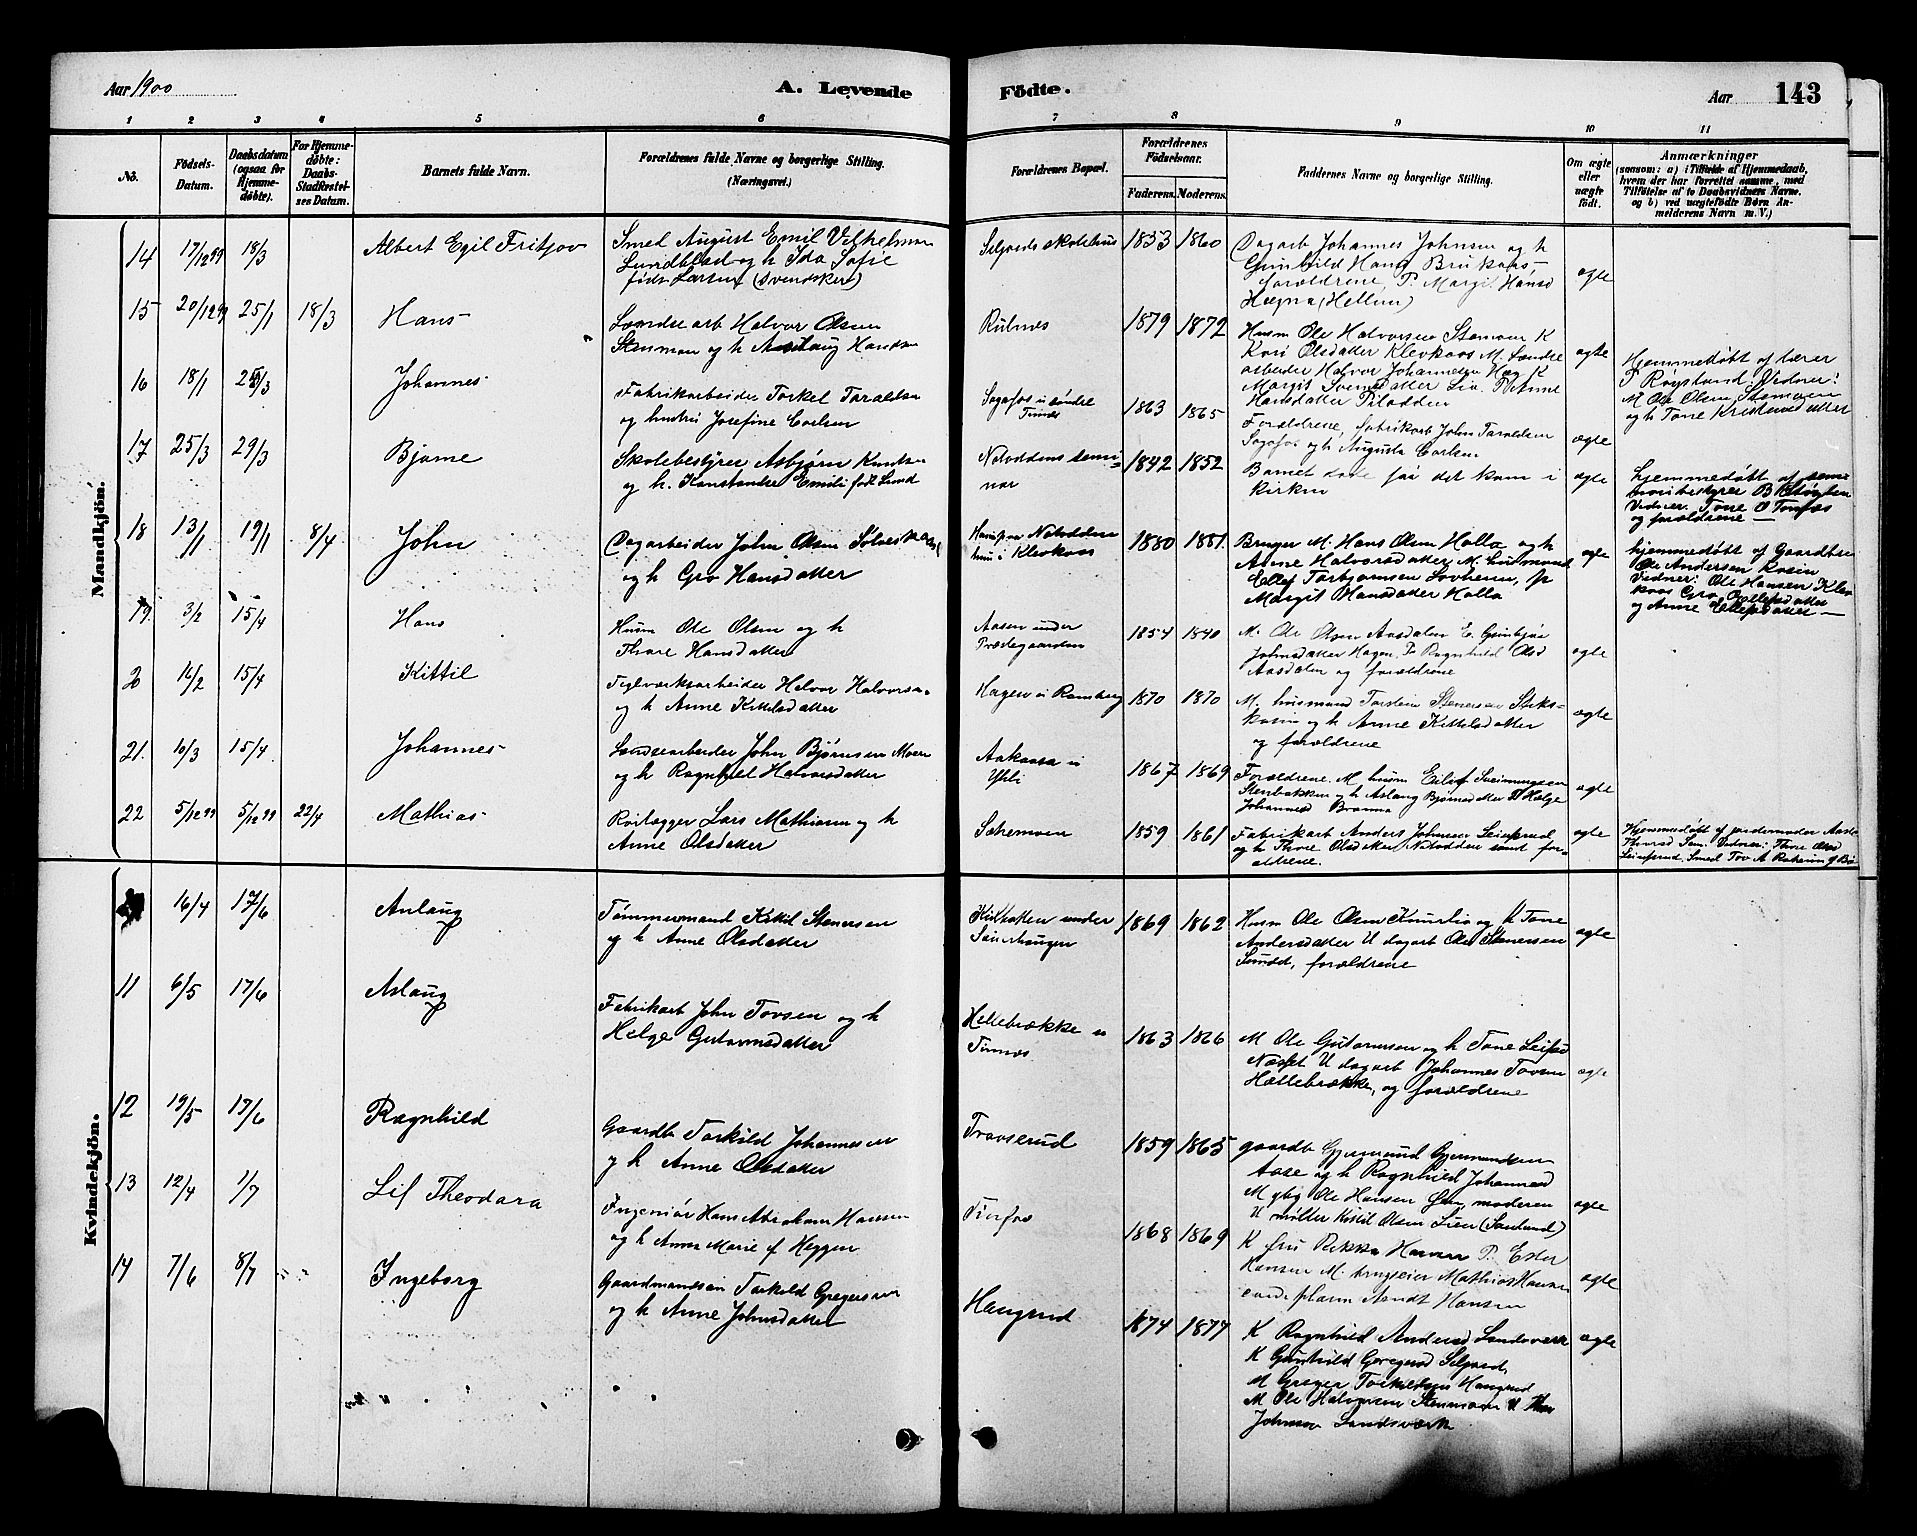 Aar 1900
A. Levende
Fødte.
Aar
143
1 2 3 4 5 6 7 8 9 10 11
No.
Fødsels-Datum.
Daabsdatum (ogsaa for Hjemmedøbte).
For Hjemmedøbte: Daabs-Stadfæstelses Datum.
Barnets fulde Navn.
Forældrenes fulde Navne og borgerlige Stilling. (Næringsvei.)
Forældrenes Bopæl.
Forældrenes Fødselsaar.
Faderens. Moderens.
Faddernes Navne og borgerlige Stilling.
Om ægte eller uægte født.
Anmærkninger
(saasom: a) i Tilfælde af Hjemmedaab, hvem der har forrettet samme, med Tilføielse af to Daabsvidners Navne, og b) ved uægtefødte Børn Anmelderens Navn m. V.)
Mandkjøn.
14 17/12 99 18/3 Albert Egil Fritjov
Smed August Emil Vilhelm
Lundblad og h Ida Sofie
født Larsen (svensker)
1853 1860
Dagarb Johannes Johnsen og h
Gunhild Hans Brukaas
forældrene, P. Margit Hansd
Hægna (Hellem)
ægte
15 20/12 99 25/1 18/3 Hans
arb Halvor Olsen
Stenmoen og h Aslaug
1879 1872
Husm Ole Halvorsen Stemoen K
Kari Olsdatter Klevkaas M.
arbeider Halvor Johannesen K
Margit
Hansdatter
ægte
Hjemmedøbt af lærer
Vidner:
M Ole Olsen Stemoen
og h Tone Kristensdatter
16 18/1 25/3 Johannes
Fabrikarbeider Torkel Taraldsen
og hustru Josefine Carlsen
Sagafos i søndre
Tinnes
1863 1865
Forældrene, fabrikarb John Taraldsen
Sagafos og h Augusta Carlsen
ægte
17 25/3 29/3 Bjarne
Skolebestyrer Asbjørn Knutsen
og h. Konstanse Emilie født Lund
Notoddens semi-
nar
1842 1852
Barnet døde før det kom i
kirken
ægte
hjemmedøbt af
Vidner. Tone O Tinfos
og forældrene
18 13/1 19/1 8/4 John
Dagarbeider John Olsen
og h Gro Hansdatter
Notodden
hus i Klevkaas
1880 1881.
Bruger M. Hans Olsen Holla og h
Anne Halvorsdatter M. husmand
Ellef Torbjørnsen Lovheim, P
Margit Hansdatter Holla
ægte
hjemmedøbt af Gaardbr
Ole Andersen Kosin
Vidner: Ole Hansen Klev
kaas Gro
og Anne
19. 3/2 15/4 Hans
Husm Ole Olsen og h
Thore Hansdatter
Aasen under
Præstegaarden
1854 1840
M. Ole Olsen Aasdalen E. Gunbjør
Johnsdatter Hagen. P Ragnhild Olsd
Aasdalen og forældrene
ægte
20 14/2 15/4 Kittil
Teglverksarbeider Helvor Halvorsen
og h Anne Kittilsdatter
Hagen i Ramberg
1870 1870
M. husmand Torstein Stenersen
og h Anne Kittilsdatter
og forældrene
ægte
21. 10/3 15/4. Johannes
arbeider John Bjørnsen Moen
og h Ragnhil Halvorsdatter
Aakaasa i
Ytli
1867 1869
Forældrene. M husm Eilef
Stenbakken og h Aslaug Bjørnsdatter P Helge
Johannesd
ægte
22 5/12 99 5/12 99 22/4 Mathias
Rørlægger Lars Mathisen og h
Anne Olsdatter
Sætremoen
1859 1861
Fabrikarb Anders Johansen
og h Thore Olsdatter Notodden samt for-
ældrene.
ægte
Hjemmedøbt af jordemoder
Vidner: Thore Olsd
Smed Tov A
Kvindekjøn.
16/4 17/6 Aslaug
Tømmermand Kittil Stenersen
og h Anne Olsdatter
under
1869 1862
Husm Ole Olsen og h Tone
Andersdatter U dagarb Ole Stenersen
forældrene
ægte
11 6/5 17/6 Aslaug
Fabrikarb John Tovsen og h
Helge Gutormsdatter
Hellebrække i
Tinnes
1863 1866
M Ole Gutormsen og h Tone Leifsd
Næsset U dagarb Johannes Tovsen
Hællebrække, og forældrene
ægte
12 19/5 17/6 Ragnhild
Gaardb Torkild Johannesen
og h Anne Olsdatter
Travserud
1859 1865
gaardb Gjermund Gjermundsen
Aase og h Ragnhild Johannesd
M gbg Ole Hansen Sem, moderen
U møller Kittil Olsen Lien (Sanlund)
ægte
13 12/4 1/7 Lif Theodara
Ingeniør Hans Abraham Hansen
og h Anna Marie f Heggen
Tinfos
1868 1869
K fru Rikka Hansen P. Ester
Hansen M. brugseier Mathias Hansen
cand. pharm Arndt Hansen
ægte
14 7/6 8/7 Ingeborg
Gaardmandssøn Torkild Gregersen
og h Anne Johnsdatter
Haugrud
1874 1877
K Ragnhild Andersd Landsverk
K Gunhild Gregersd Seljord
M Greger Torkildsen Haugrud
M Ole Halvorsen Stenmoen U
Johnsen Landsværk
ægte